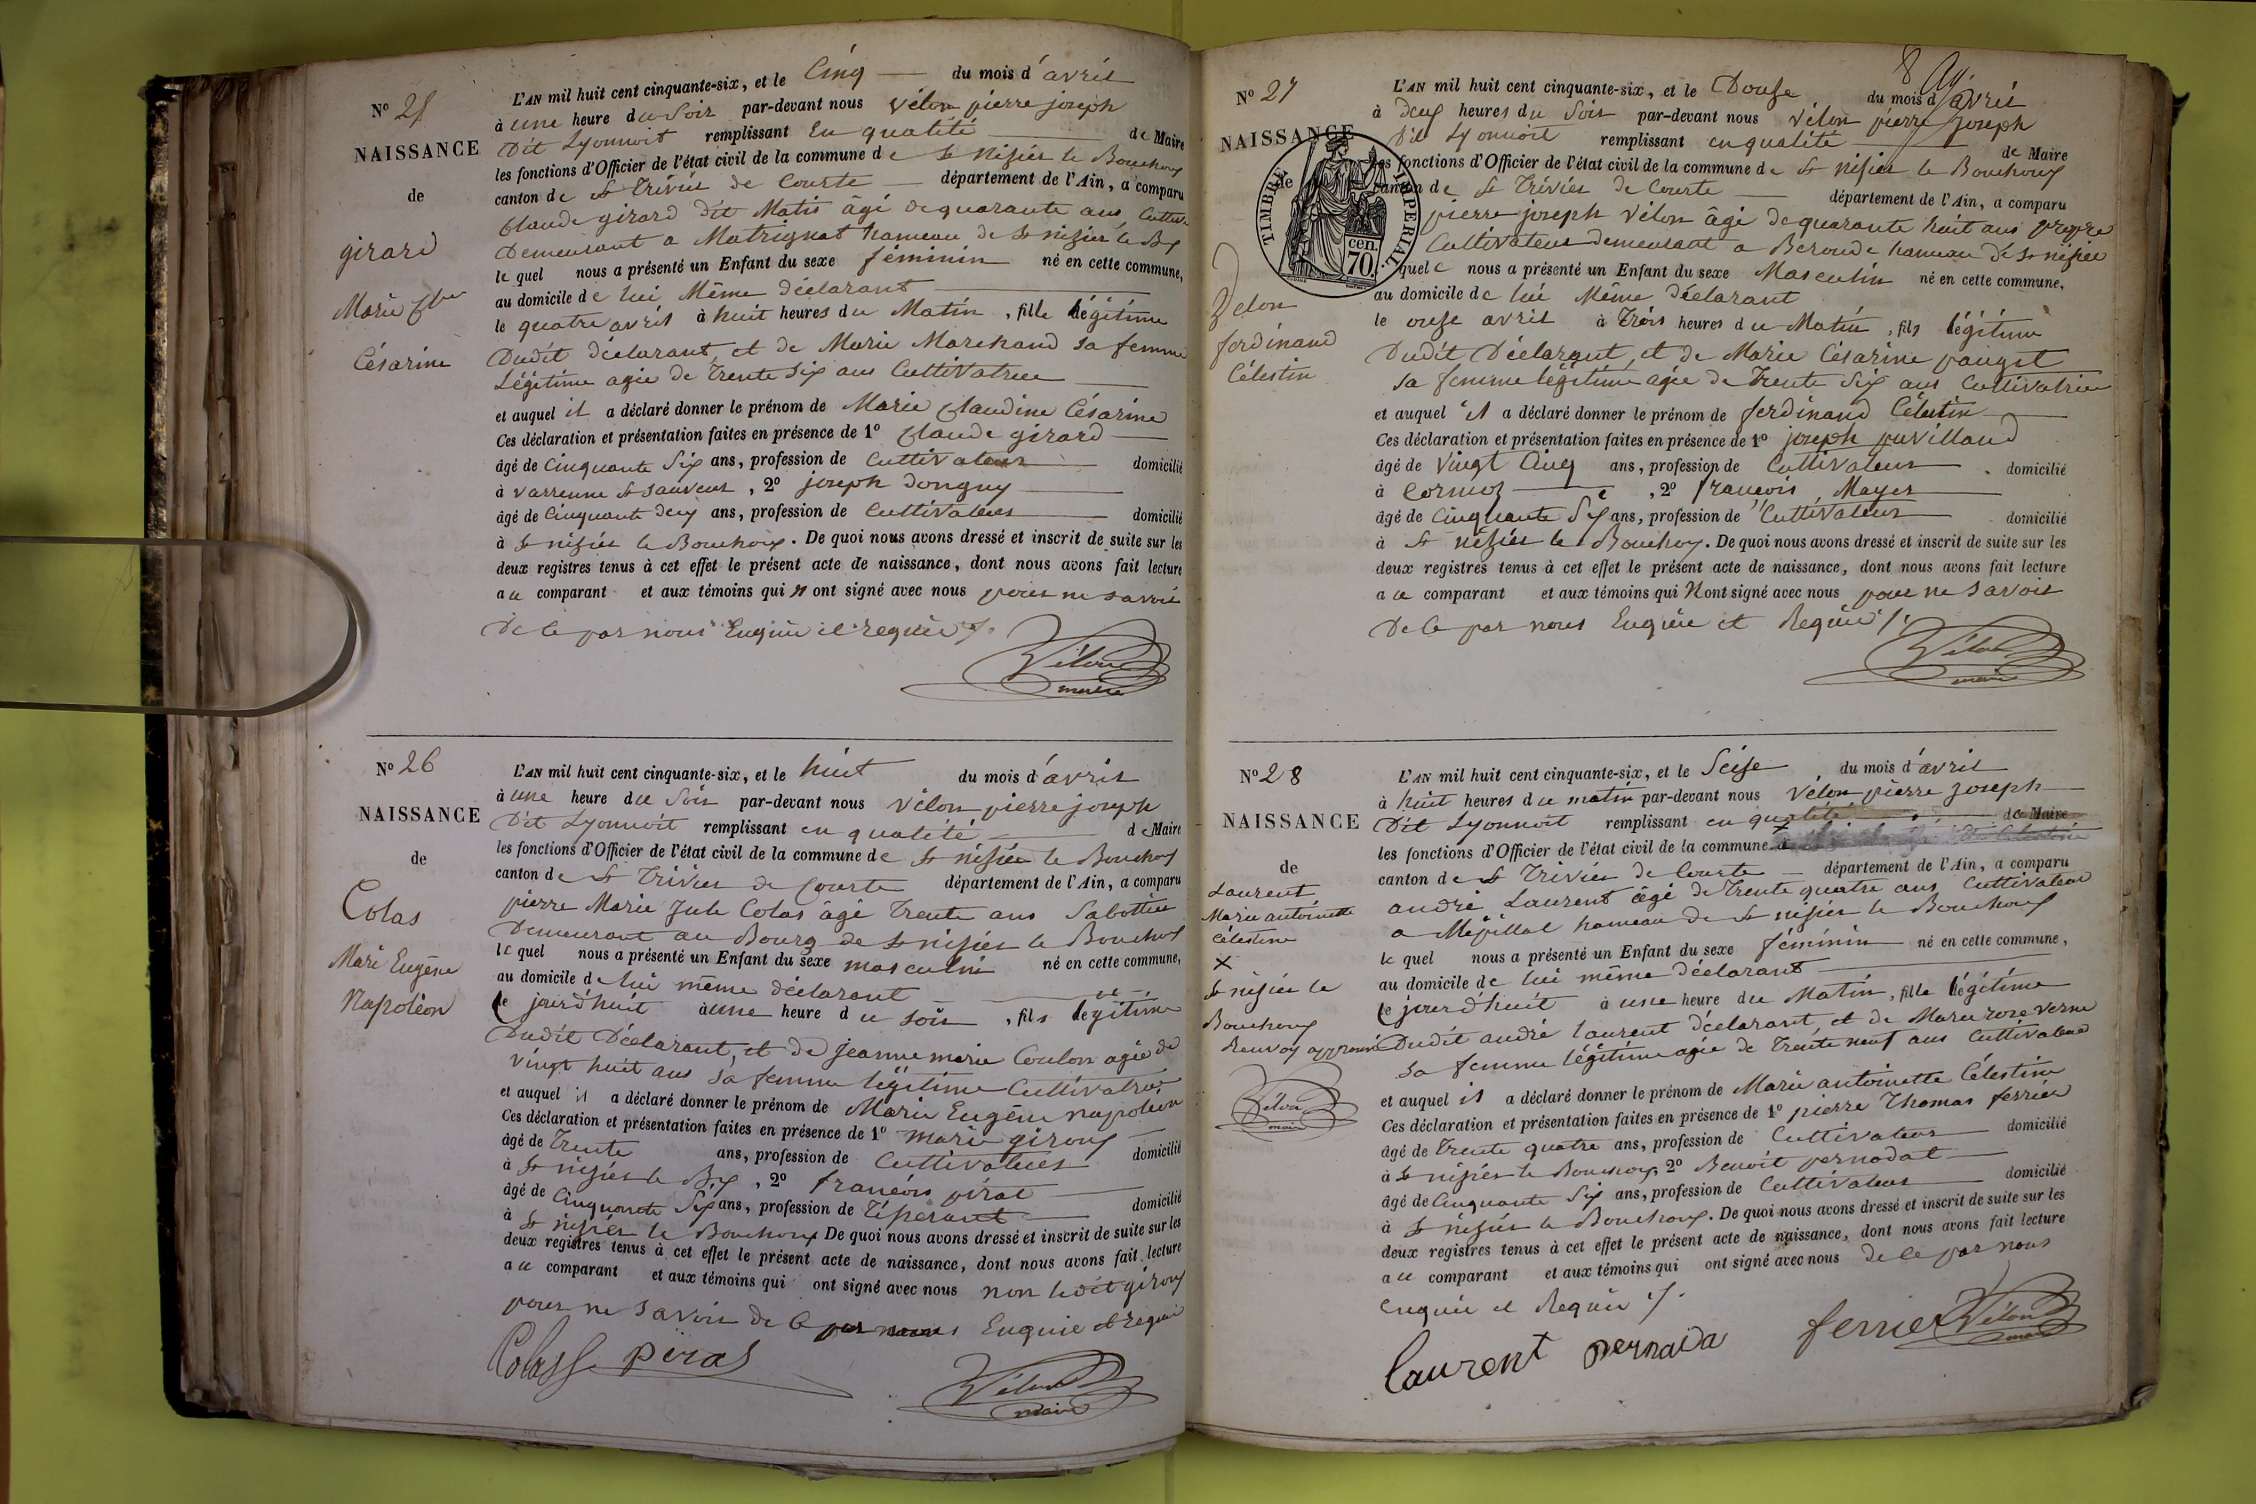 N° 25
NAISSANCE
de
girard
Marie Cne
Césarine
L'AN mil huit cent cinquante-six, et le Cinq du mois d'avril
à une heure du Soir par-devant nous vélon pierre joseph
Dit Lyonnoit remplissant En qualité de Maire
les fonctions d'Officier de l'état civil de la commune de St Nisier le Bouchoux
canton de St Trivier de Courte département de l'Ain, a comparu
Claude girard dit Matis âgé de quarante ans, Cultiv.
Demeurant a Matrignat hameau de St nisier le Bx
le quel nous a présenté un Enfant du sexe féminin né en cette commune,
au domicile de lui Même déclarant
le quatre avril à huit heures du Matin, fille légitime
Dudit déclarant, et de Marie Marchand sa femme
Légitime agée de Trente Six ans Cultivatrice
et auquel il a déclaré donner le prénom de Marie Claudine Césarine
Ces déclaration et présentation faites en présence de 1° Claude girard
âgé de Cinquante Six ans, profession de Cultivateur domicilié
à varrenne St Sauveur, 2° joseph Donguy
âgé de Cinquante deux ans, profession de Cultivateur domicilié
à St nisier le Bouchoux. De quoi nous avons dressé et inscrit de suite sur les
deux registres tenus à cet effet le présent acte de naissance, dont nous avons fait lecture
au comparant et aux témoins qui n ont signé avec nous pour ne savoir
De Ce par nous Enquis et requis ./.
Vélon
maire
N° 26
NAISSANCE
de
Colas
Marie Eugène
Napoléon
L'AN mil huit cent cinquante-six, et le huit du mois d'avril
à une heure du Soir par-devant nous vélon pierre joseph
Dit Lyonnoit remplissant en qualité de Maire
les fonctions d'Officier de l'état civil de la commune de St nisier le Bouchoux
canton de St Trivier de Courte département de l'Ain, a comparu
pierre Marie Jule Colas âgé Trente ans Sabottier
Demeurant au Bourg de St nisier le Bouchoux
le quel nous a présenté un Enfant du sexe masculin né en cette commune,
au domicile de lui même déclarant
le jourd'huit à une heure du soir, fils légitime
Dudit Déclarant, et de jeanne marie Coulon agée de
vingt huit ans sa femme légitime Cultivatrice
et auquel il a déclaré donner le prénom de Marie Eugène napoléon
Ces déclaration et présentation faites en présence de 1° marie giroux
âgé de Trente ans, profession de Cultivateur domicilié
à St nisier le Bx, 2° françois pirat
âgé de Cinquante Six ans, profession de Tisserant domicilié
à St nisier le Bouchoux De quoi nous avons dressé et inscrit de suite sur les
deux registres tenus à cet effet le présent acte de naissance, dont nous avons fait lecture
au comparant et aux témoins qui ont signé avec nous non ledit giroux
pour ne Savoir de Ce par nous Enquis et requis
Colas pirat
Vélon
maire
8
N° 27
NAISSANCE
de
TIMBRE IMPERIAL
70 cen.
Velon
ferdinand
Célestin
L'AN mil huit cent cinquante-six, et le Douze du mois d'avril
à Deux heures du Soir par-devant nous vélon pierre joseph
Dit Lyonnoit remplissant en qualité de Maire
les fonctions d'Officier de l'état civil de la commune de St nisier le Bouchoux
canton de St Trivier de Courte département de l'Ain, a comparu
pierre joseph Vélon âgé de quarante huit ans propre
Cultivateur demeurant a Beroude hameau de St nisier
quel nous a présenté un Enfant du sexe Masculin né en cette commune,
au domicile de lui Même Déclarant
le onze avril à Trois heures du Matin, fils légitime
Dudit Déclarant, et de Marie Césarine pauget
sa femme légitime agée de Trente Six ans Cultivatrice
et auquel il a déclaré donner le prénom de ferdinand Célestin
Ces déclaration et présentation faites en présence de 1° joseph puvilland
âgé de Vingt Cinq ans, profession de Cultivateur domicilié
à Cormoz, 2° françois Mayer
âgé de Cinquante Six ans, profession de Cultivateur domicilié
à St nisier le Bouchoux. De quoi nous avons dressé et inscrit de suite sur les
deux registres tenus à cet effet le présent acte de naissance, dont nous avons fait lecture
au comparant et aux témoins qui N ont signé avec nous pour ne savoir
De Ce par nous Enquis et Requis ./.
Vélon
maire
N° 28
NAISSANCE
de
Laurent
Marie antoinette
Célestine
X
St nisier le
Bouchoux
Renvoy approuvé
Vélon
maire
L'AN mil huit cent cinquante-six, et le Seize du mois d'avril
à huit heures du matin par-devant nous Vélon pierre joseph
Dit Lyonnoit remplissant en qualité de Maire
les fonctions d'Officier de l'état civil de la commune
canton de St Trivier de Courte département de l'Ain, a comparu
andré Laurent âgé de Trente quatre ans Cultivateur
a Mépillat hameau de St nisier le Bouchoux
le quel nous a présenté un Enfant du sexe féminin né en cette commune,
au domicile de lui même déclarant
le jourd'huit à une heure du Matin, fille légitime
Dudit andré laurent déclarant, et de Marie rose verne
sa femme légitime agée de Trente neuf ans Cultivateur
et auquel il a déclaré donner le prénom de Marie antoinette Célestine
Ces déclaration et présentation faites en présence de 1° pierre Thomas ferrier
âgé de Trente quatre ans, profession de Cultivateur domicilié
à St nisier le Bouchoux, 2° Benoit pernodat
âgé de Cinquante Six ans, profession de Cultivateur domicilié
à St nisier le Bouchoux. De quoi nous avons dressé et inscrit de suite sur les
deux registres tenus à cet effet le présent acte de naissance, dont nous avons fait lecture
au comparant et aux témoins qui ont signé avec nous de ce par nous
enquis et Requis ./.
Laurent pernada ferrier Vélon
maire